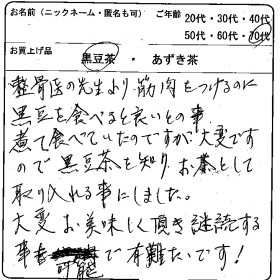 お名前（ニックネーム・匿名も可）
ご年齢
20代・30代・40代
50代・60代・70代
お買上げ品
黒豆茶 ・ あずき茶
整骨医の先生より筋肉をつけるのに
黒豆を食べると良いとの事
煮て食べていたのですが大変です
ので黒豆茶を知り、お茶として
取り入れる事にしました。
大変お美味しく頂き継続する
事も可能で有難たいです！